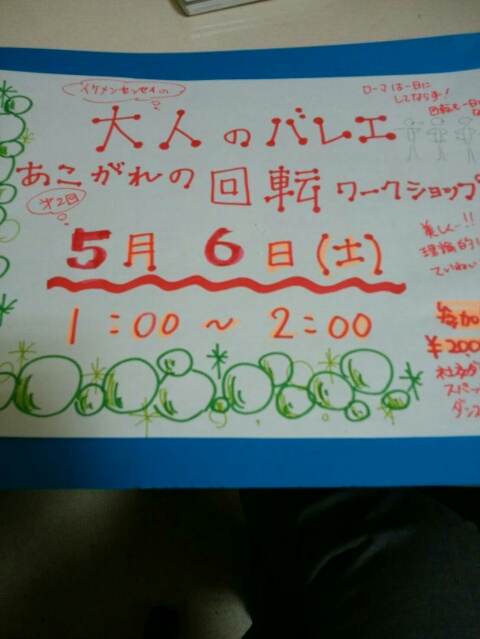 イケメンセンセイの
大人のバレエ
ローマは一日に
してならず!
回転も一日に
あこがれの回転ワークショップ
第2回
5月 6日(土)
1:00 ~ 2:00
美しく!!
理論的に
ていねい
参加
¥200
ダンス